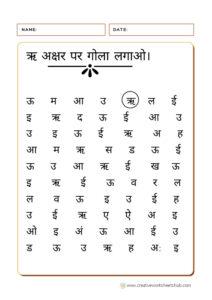 NAME: DATE:
ऋ अक्षर पर गोला लगाओ।
ऊ म आ उ ऋ ल ई
इ ऋ द ऊ ई आ उ
उ इ ऊ ई ऋ अ ह
आ म ऋ स ड ऊ ई
ऊ उ आ ऋ ई ख ऊ
इ ऋ ई ऊ व र ल
ल व ऊ इ उ ई ह
उ ई ऋ ए ऐ अ इ
ओ इ अं ऊ आ ई उ
ड ऊ उ ऋ ह अः इ
www.creativeworksheetshub.com